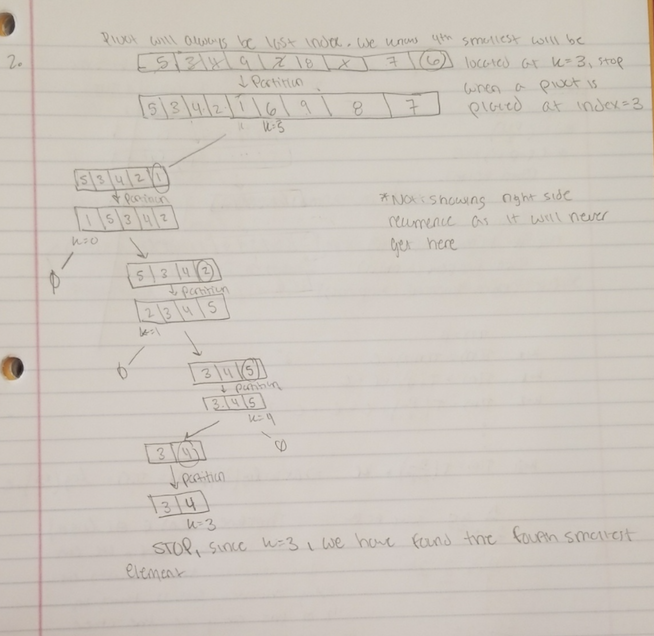 Pivot will always be last index. We know 4th smallest will be
2.
5 3 4 9 2 8 1 7 6 located at k=3, stop
↓ Partition when a pivot is
5 3 4 2 1 6 9 8 7 placed at index=3
k=3
5 3 4 2 1
↓ Partition
1 5 3 4 2
k=0
*Not showing right side
recurrence as it will never
get here
∅
5 3 4 2
↓ Partition
2 3 4 5
k=1
∅
3 4 5
↓ Partition
3 4 5
k=4
∅
3 4
↓ Partition
3 4
k=3
STOP, since k=3, we have found the fourth smallest
element